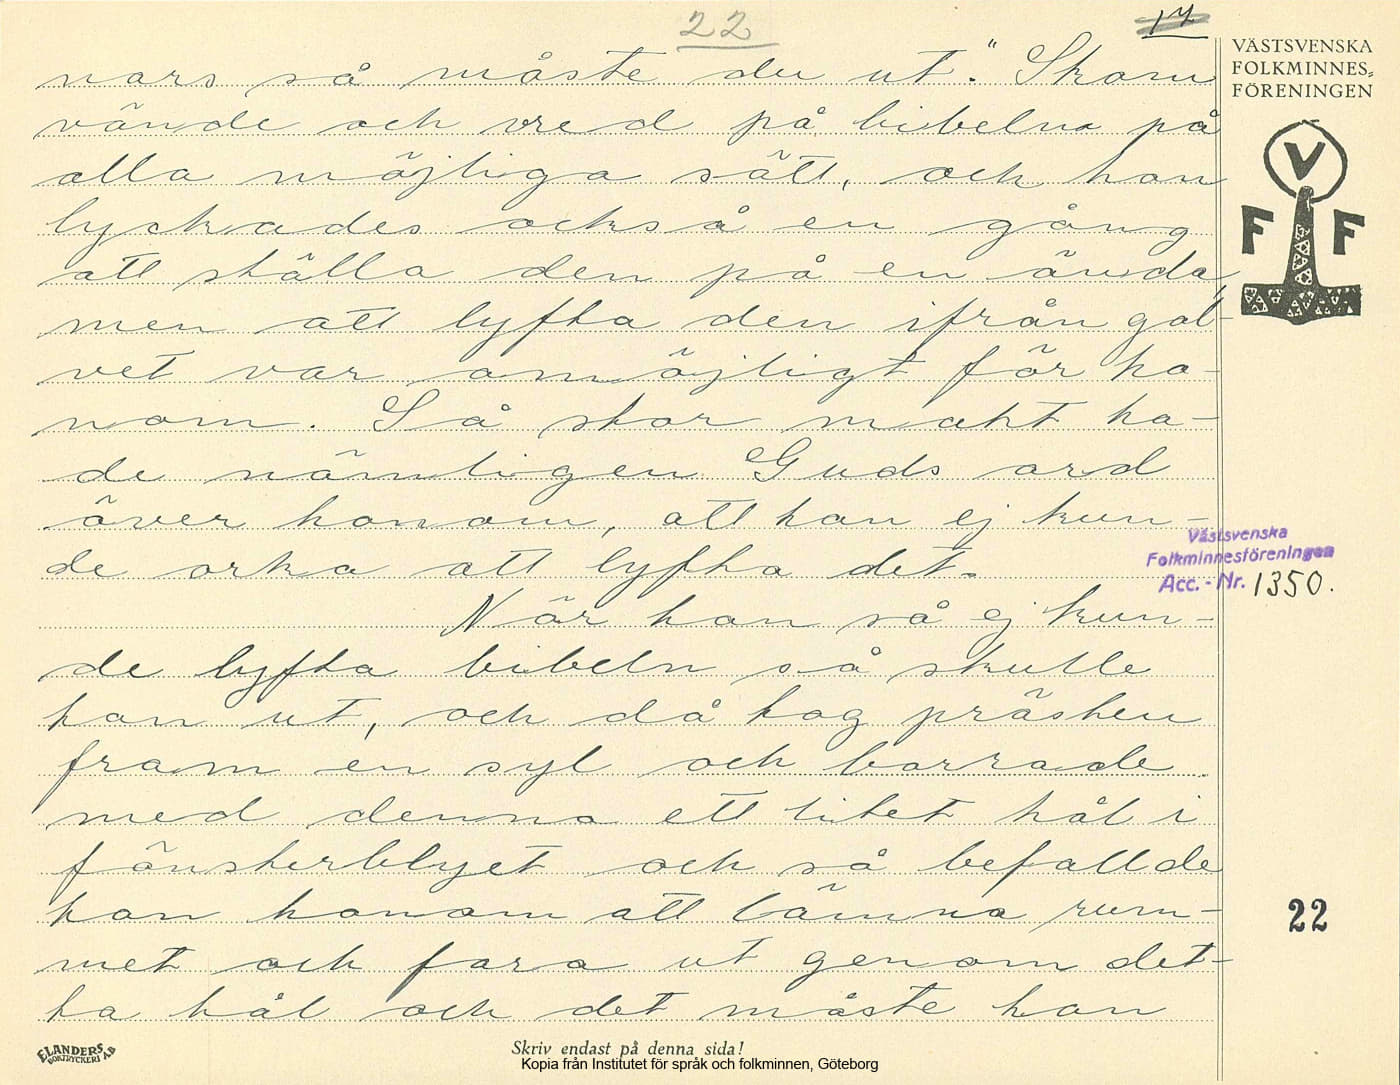 22
17
nars så måste du ut." Skam
vände och vred på bibeln på
alla möjliga sätt, och han
lyckades också en gång
att ställa den på en ända,
men att lyfta den ifrån gol-
vet var omöjligt för ho-
nom. Så stor makt ha-
de nämligen Guds ord
över honom, att han ej kun-
de orka att lyfta det.
När han så ej kun-
de lyfta bibeln så skulle
han ut, och då tog prästen
fram en syl och borrade
med denna ett litet hål i
fönsterblyet och så befallde
han honom att lämna rum-
met och fara ut genom det-
ta hål och det måste han
VÄSTSVENSKA
FOLKMINNES-
FÖRENINGEN
V
F F
Västsvenska
Folkminnesföreningen
Acc. - Nr. 1350.
22
ELANDERS
BOKTRYCKERI A.B
Skriv endast på denna sida!
Kopia från Institutet för språk och folkminnen, Göteborg